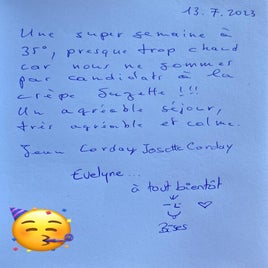 13.7.2023
Une super semaine à
35°, presque trop chaud
car nous ne sommes
pas candidats à la
crêpe Suzette !!!
Un agréable séjour,
très agréable et calme.
Jean Corday Josette Corday
Evelyne...
à tout bientôt
Bises